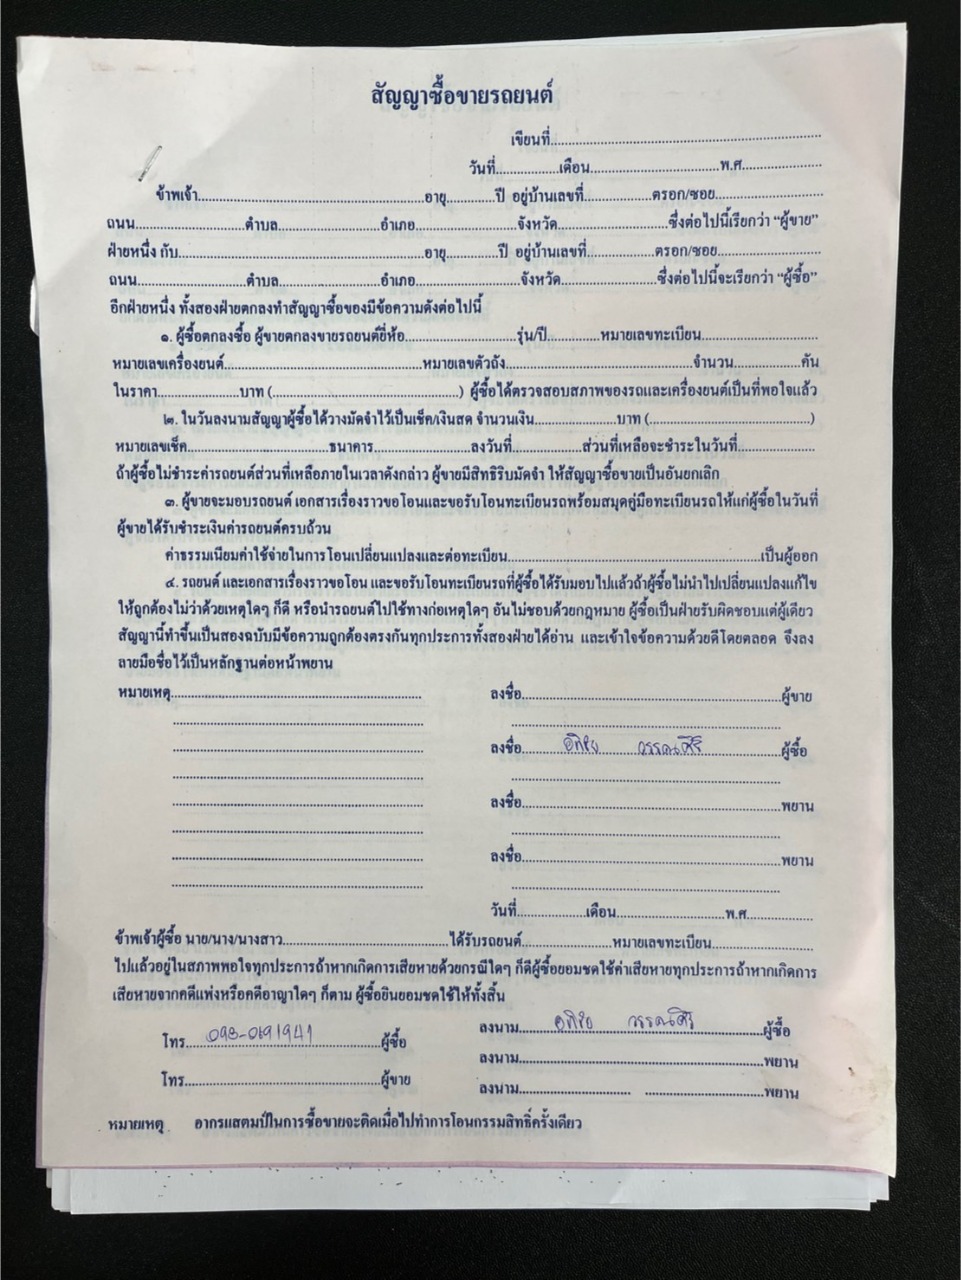 สัญญาซื้อขายรถยนต์
เขียนที่..............................
วันที่...............เดือน..............................พ.ศ....................
ข้าพเจ้า..............................อายุ............ปี อยู่บ้านเลขที่................ตรอก/ซอย....................
ถนน....................ตำบล....................อำเภอ....................จังหวัด....................ซึ่งต่อไปนี้เรียกว่า "ผู้ขาย"
ฝ่ายหนึ่ง กับ..............................อายุ............ปี อยู่บ้านเลขที่................ตรอก/ซอย....................
ถนน....................ตำบล....................อำเภอ....................จังหวัด....................ซึ่งต่อไปนี้จะเรียกว่า "ผู้ซื้อ"
อีกฝ่ายหนึ่ง ทั้งสองฝ่ายตกลงทำสัญญาซื้อของมีข้อความดังต่อไปนี้
๑. ผู้ซื้อตกลงซื้อ ผู้ขายตกลงขายรถยนต์ยี่ห้อ....................รุ่น/ปี............หมายเลขทะเบียน....................
หมายเลขเครื่องยนต์..............................หมายเลขตัวถัง..............................จำนวน................คัน
ในราคา....................บาท (..............................) ผู้ซื้อได้ตรวจสอบสภาพของรถและเครื่องยนต์เป็นที่พอใจแล้ว
๒. ในวันลงนามสัญญาผู้ซื้อได้วางมัดจำไว้เป็นเช็ค/เงินสด จำนวนเงิน....................บาท (..............................)
หมายเลขเช็ค....................ธนาคาร....................ลงวันที่................ส่วนที่เหลือจะชำระในวันที่....................
ถ้าผู้ซื้อไม่ชำระค่ารถยนต์ส่วนที่เหลือภายในเวลาดังกล่าว ผู้ขายมีสิทธิริบมัดจำ ให้สัญญาซื้อขายเป็นอันยกเลิก
๓. ผู้ขายจะมอบรถยนต์ เอกสารเรื่องราวขอโอนและขอรับโอนทะเบียนรถพร้อมสมุดคู่มือทะเบียนรถให้แก่ผู้ซื้อในวันที่
ผู้ขายได้รับชำระเงินค่ารถยนต์ครบถ้วน
ค่าธรรมเนียมค่าใช้จ่ายในการโอนเปลี่ยนแปลงและต่อทะเบียน..............................เป็นผู้ออก
๔. รถยนต์ และเอกสารเรื่องราวขอโอน และขอรับโอนทะเบียนรถที่ผู้ซื้อได้รับมอบไปแล้วถ้าผู้ซื้อไม่นำไปเปลี่ยนแปลงแก้ไข
ให้ถูกต้องไม่ว่าด้วยเหตุใดๆ ก็ดี หรือนำรถยนต์ไปใช้ทางก่อเหตุใดๆ อันไม่ชอบด้วยกฎหมาย ผู้ซื้อเป็นฝ่ายรับผิดชอบแต่ผู้เดียว
สัญญานี้ทำขึ้นเป็นสองฉบับมีข้อความถูกต้องตรงกันทุกประการทั้งสองฝ่ายได้อ่าน และเข้าใจข้อความด้วยดีโดยตลอด จึงลง
ลายมือชื่อไว้เป็นหลักฐานต่อหน้าพยาน
หมายเหตุ..............................
ลงชื่อ..............................ผู้ขาย
ลงชื่อ..........วรรณศิริ..........ผู้ซื้อ
ลงชื่อ..............................พยาน
ลงชื่อ..............................พยาน
วันที่................เดือน....................พ.ศ................
ข้าพเจ้าผู้ซื้อ นาย/นาง/นางสาว..............................ได้รับรถยนต์....................หมายเลขทะเบียน....................
ไปแล้วอยู่ในสภาพพอใจทุกประการถ้าหากเกิดการเสียหายด้วยกรณีใดๆ ก็ดีผู้ซื้อยอมชดใช้ค่าเสียหายทุกประการถ้าหากเกิดการ
เสียหายจากคดีแพ่งหรือคดีอาญาใดๆ ก็ตาม ผู้ซื้อยินยอมชดใช้ให้ทั้งสิ้น
โทร....093-0691941....ผู้ซื้อ
โทร..............................ผู้ขาย
ลงนาม..........วรรณศิริ..........ผู้ซื้อ
ลงนาม..............................พยาน
ลงนาม..............................พยาน
หมายเหตุ อากรแสตมป์ในการซื้อขายจะติดเมื่อไปทำการโอนกรรมสิทธิ์ครั้งเดียว